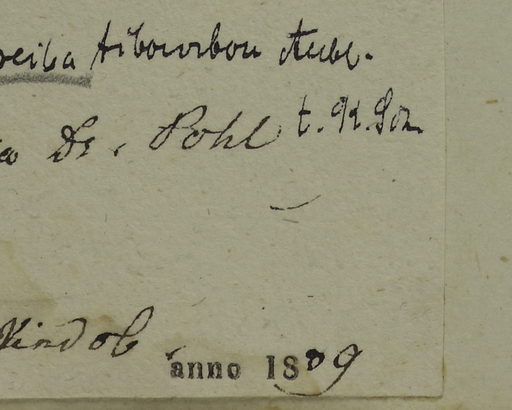 eiba tibourbou Aubl.
Dr. Pohl t. K. Sch.
Vindob.
anno 1839